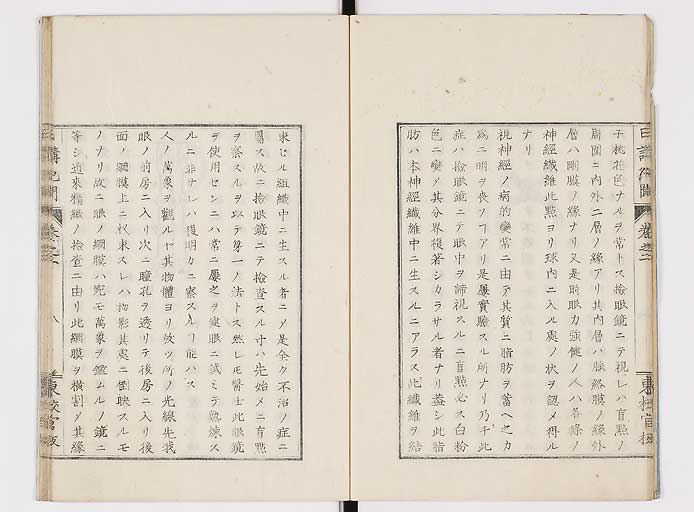 子桃花色ナルヲ常トス撿眼鏡ニテ視レハ盲點ノ
周圍ニ内外二層ノ緣アリ其内層ハ脈絡膜ノ緣外
層ハ剛膜ノ緣ナリ又是時眼力強健ノ人ハ各條ノ
神經纖維此點ヨリ球内ニ入ル處ノ狀ヲ認メ得ル
ナリ
視神經ノ病的變常ニ由テ其質ニ脂肪ヲ蓄ヘ之カ
爲ニ明ヲ喪フヿアリ是屢實驗スル所ナリ乃チ此
症ハ撿眼鏡ニテ眼中ヲ諦視スルニ盲點必ス白粉
色ニ變メ其分界後著シカラサル者ナリ蓋シ此脂
肪ハ本神經纖維中ニ生スルニアラス此纖維ヲ結
東校官板
東セル組織中ニ生スル者ニメ是全ク不治ノ症ニ
屬ス故ニ撿眼鏡ニテ撿査スル寸ハ先始メニ盲點
ヲ察スルヲ以テ第一ノ法トス然レ𪜈醫士此眼鏡
ヲ使用センニハ常ニ屢之ヲ健眼ニ試ミテ熟煉ス
ルニ非サレハ獲明カニ察スルヿ能ハス
人ノ萬象ヲ觀ルヤ其物體ヨリ放ツ所ノ光線先我
眼ノ前房ニ入リ次ニ瞳孔ヲ透リテ後房ニ入リ後
面ノ網膜上ニ收束スレハ物影其處ニ倒映スルモ
ノナリ故ニ眼ノ網膜ハ宛モ萬象ヲ鑑ムルノ鏡ニ
等シ近來精緻ノ撿査ニ由リ此網膜ヲ橫割メ其緣
日講記聞
卷之二
八
東校官板